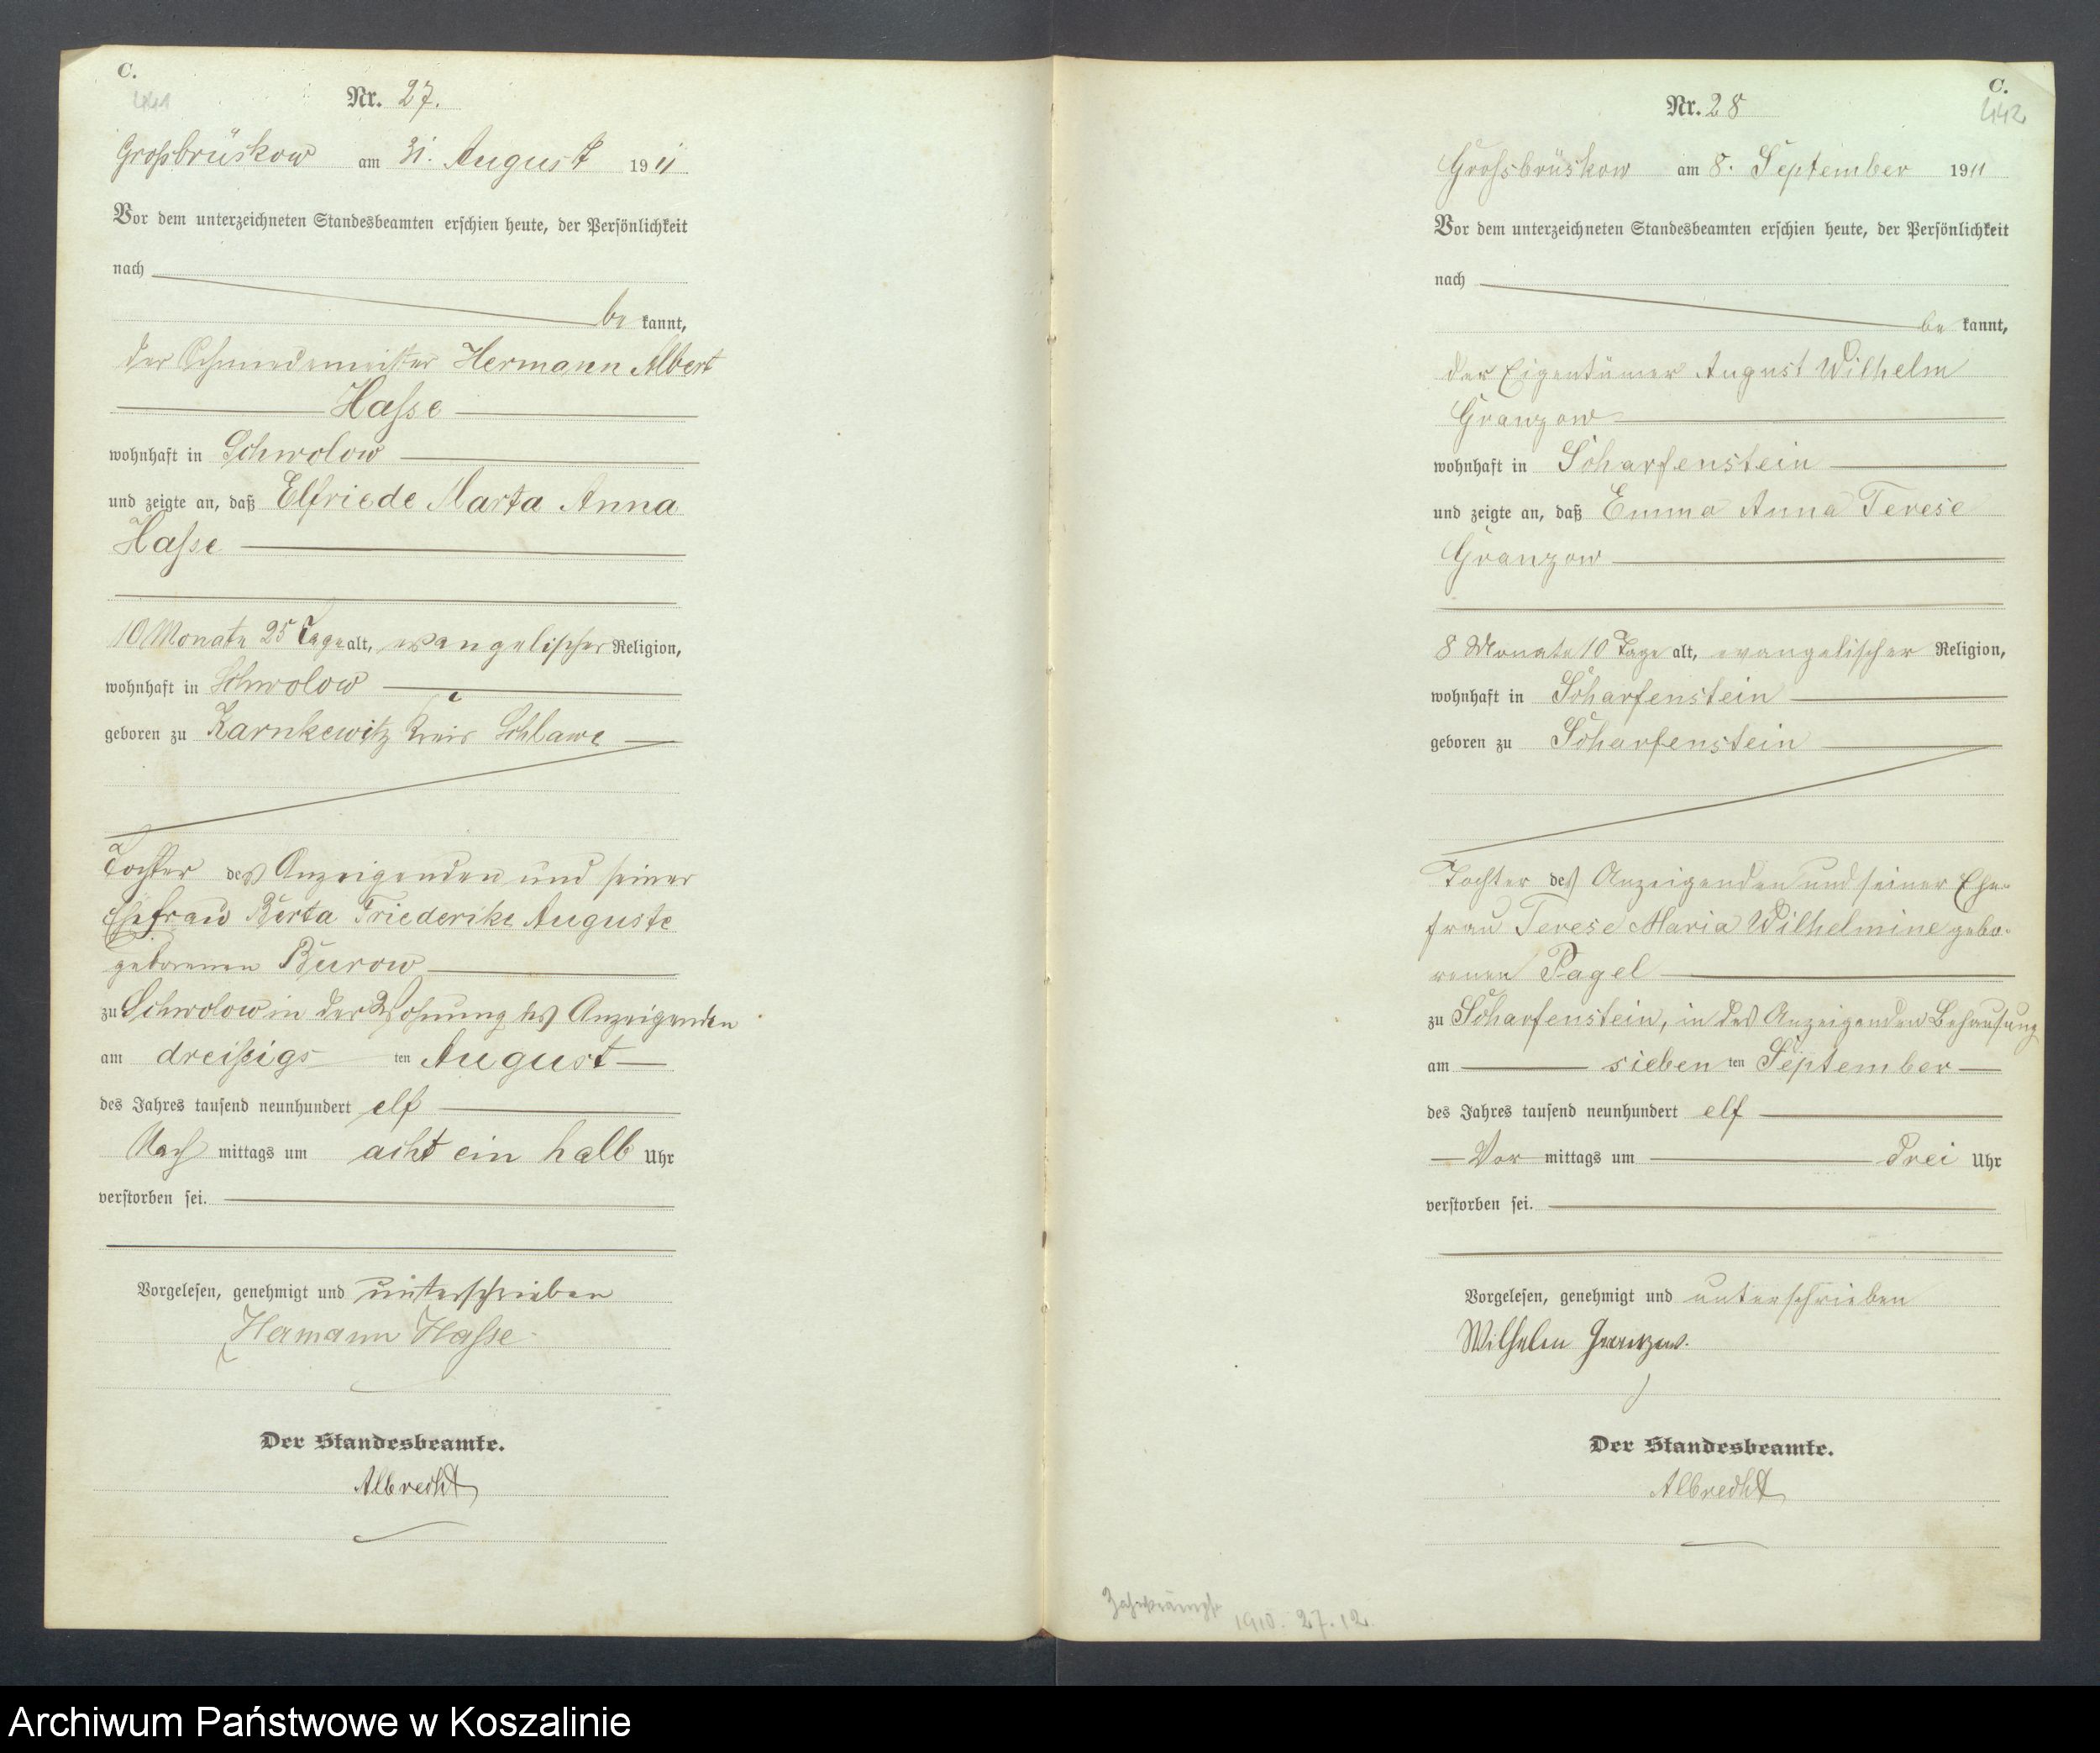 C.
441
Nr. 27.
Großbrüskow am 31. August 1911
Vor dem unterzeichneten Standesbeamten erschien heute, der Persönlichkeit
nach
be kannt,
der Schmiedemeister Hermann Albert
Hasse
wohnhaft in Schwolow
und zeigte an, daß Elfriede Marta Anna
Hasse
10 Monate 25 Tage alt, evangelischer Religion,
wohnhaft in Schwolow
geboren zu Karnkewitz Kreis Schlawe
Tochter des Anzeigenden und seiner
Ehefrau Berta Friederike Auguste
geborenen Burow
zu Schwolow in der Wohnung des Anzeigenden
am dreißigs ten August
des Jahres tausend neunhundert elf
Nach mittags um acht ein halb Uhr
verstorben sei.
Vorgelesen, genehmigt und unterschrieben
Hermann Hasse
Der Standesbeamte.
Albrecht
C.
442
Nr. 28
Grossbrüskow am 8. September 1911
Vor dem unterzeichneten Standesbeamten erschien heute, der Persönlichkeit
nach
be kannt,
der Eigentümer August Wilhelm
Granzow
wohnhaft in Scharfenstein
und zeigte an, daß Emma Anna Terese
Granzow
8 Monate 10 Tage alt, evangelischer Religion,
wohnhaft in Scharfenstein
geboren zu Scharfenstein
Tochter des Anzeigenden und seiner Ehe-
frau Terese Maria Wilhelmine gebo-
renen Pagel
zu Scharfenstein, in des Anzeigenden Behausung
am sieben ten September
des Jahres tausend neunhundert elf
Vor mittags um drei Uhr
verstorben sei.
Vorgelesen, genehmigt und unterschrieben
Wilhelm Granzow.
Der Standesbeamte.
Albrecht
Zahnkrämpfe 1910. 27.12.
Archiwum Państwowe w Koszalinie